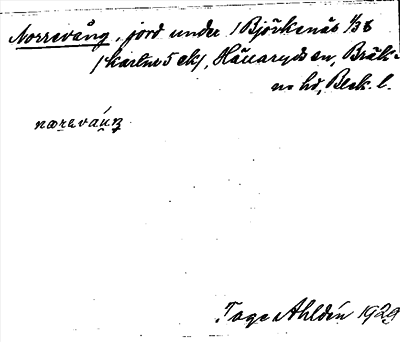 Norrevång, jord under / Björkenäs 1/3 8
/ kartur 5 ek/, Hällaryds sn, Bräk-
ne hd, Blek. l.
nærəváuŋ
Tage Ahldén 1929